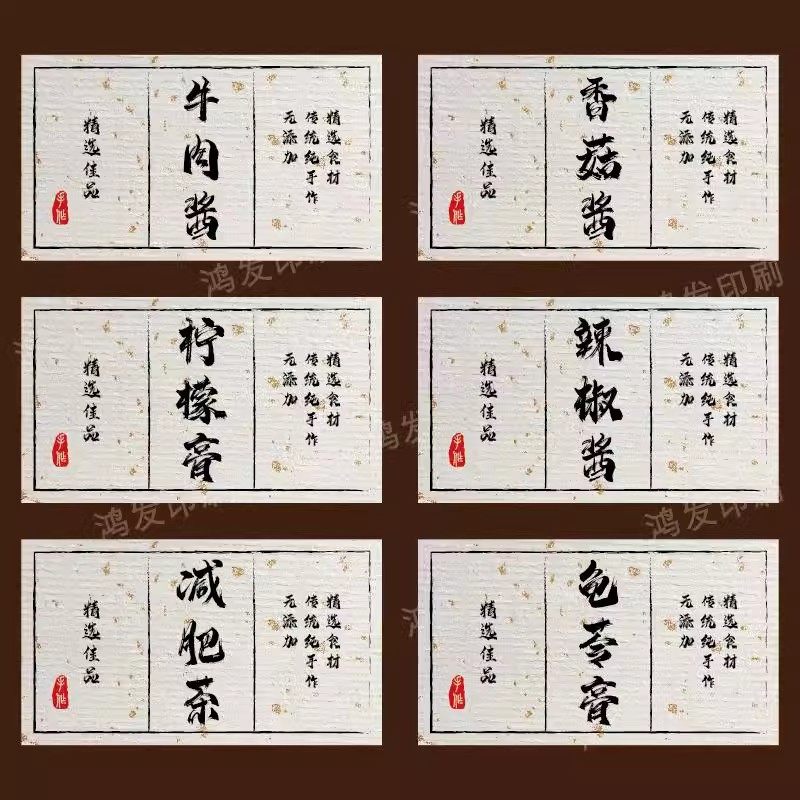 精选食材
传统纯手作
无添加
牛肉酱
精选佳品
手作
精选食材
传统纯手作
无添加
香菇酱
精选佳品
手作
鸿发印刷
鸿发印刷
精选食材
传统纯手作
无添加
柠檬膏
精选佳品
手作
精选食材
传统纯手作
无添加
辣椒酱
精选佳品
手作
鸿发印刷
鸿发印刷
精选食材
传统纯手作
无添加
减肥茶
精选佳品
手作
精选食材
传统纯手作
无添加
龟苓膏
精选佳品
手作